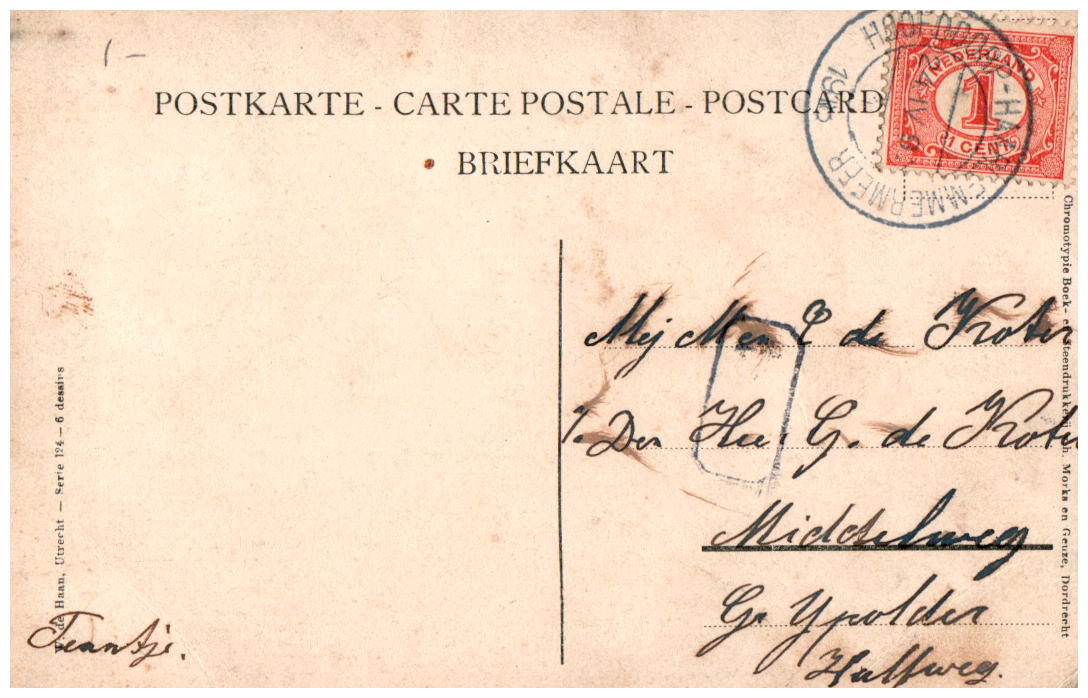 1-
POSTKARTE - CARTE POSTALE - POSTCARD
BRIEFKAART
HOOFDDORP-HAARLEMMERMEER
NEDERLAND
1
1 CENT
Mej M en P de Koter
p/a Den Heer G. de Koter
Middelweg
Gr Ypolder
Halfweg.
Teuntje.
de Haan, Utrecht — Serie 124 — 6 dessins
Chromotypie Boek- en Steendrukkerij h. Morks en Geuze, Dordrecht